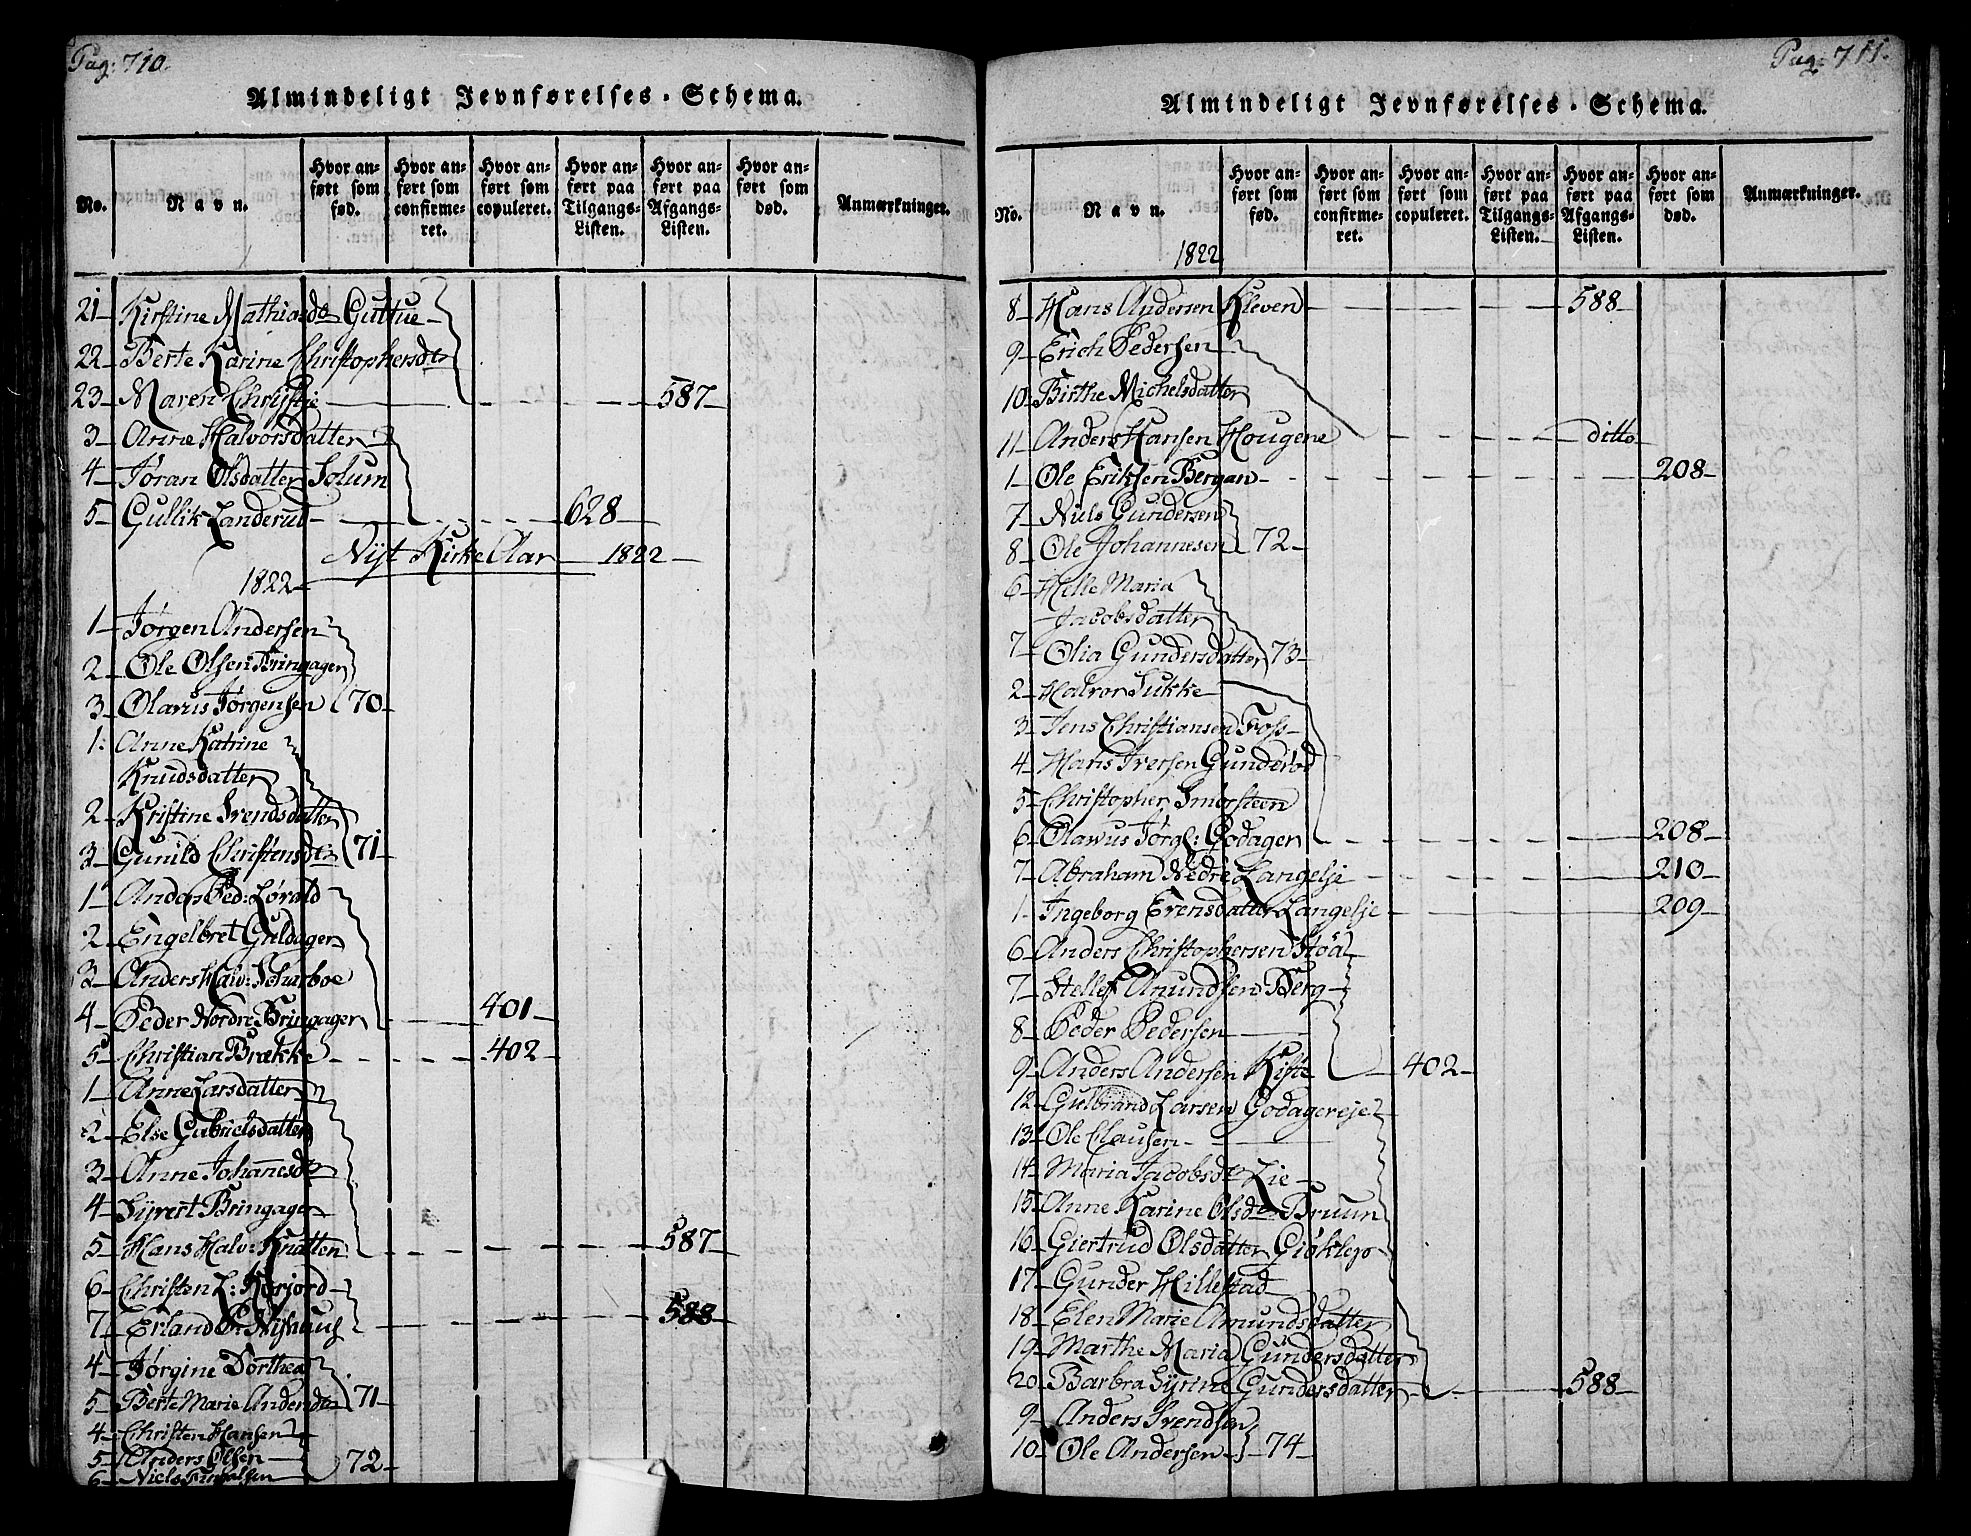 Pag: 710.
Almindeligt Jevnførelses-Schema.
No.
Navn.
Hvor anført som fød.
Hvor anført som confirmeret.
Hvor anført som copuleret.
Hvor anført paa Tilgangs-Listen.
Hvor anført paa Afgangs-Listen.
Hvor anført som død.
Anmærkninger.
21 Kirstine Mathiasd: Guttue
22 Berte Karine Christophersdr
23 Maren Christje 587
3 Anne Halvorsdatter
4 Jøran Olsdatter Solum
5 Gullik Landerud 628
Nyt Kirke Aar 1822
1822
1 Jørgen Andersen
2 Ole Olsen Bringager
3 Olavus Jørgensen 70
1 Anne Katrine
Knudsdatter
2 Kristine Svendsdatter
3 Gunild Christensdr 71
1 Ped: Lørald
2 Engelbret Guldager
3 Anders Halv: Scharboe
4 Peder Nordre Bringager 401
5 Christian Brække 402
1 Anne Larsdatter
2 Else Gabrielsdatter
3 Anne Johannesdr
4 Syvert Bringager
5 Hans Halv: Knatten 587
6 Christen L:
7 Erland 588
4 Jørgine Dorthea
5 Berte Marie Andersdr 71
4 Christen Hansen
5 Anders Olsen 72
6 Niels
Pag: 711.
Almindeligt Jevnførelses-Schema.
No.
Navn.
1822
Hvor anført som fød.
Hvor anført som confirmeret.
Hvor anført som copuleret.
Hvor anført paa Tilgangs-Listen.
Hvor anført paa Afgangs-Listen.
Hvor anført som død.
Anmærkninger.
8 Hans Andersen Kleven 588
9 Erich Pedersen
10 Birthe Michelsdatter
11 Anders Hansen Hougene ditto
1 Ole Eriksen Bergan 208
7 Niels Gundersen
8 Ole Johannesen 72
6 Helle Maria
Jacobsdatter
7 Olia Gundersdatter 73
2 Halvor Sukke
3 Jens Christiansen Foss
4 Hans Iversen Gunderød
5 Christopher Smørsteen
6 Olavus Jørg: Godager 208
7 Abraham Nedre Langelje 210
1 Ingeborg Evensdatter Langelje 209
6 Anders Christophersen Stoa
7 Stellef Amundsen Berg
8 Peder Pedersen
9 Anders Andersen Kiste 402
12 Gulbrand Larsen Godagereje
13 Ole Clausen
14 Maria Jacobsdr Lie
15 Anne Karine Olsdr Bruun
16 Giertrud Olsdatter Giøklep
17 Gunder Hillestad
18 Elen Marie Amundsdatter
19 Marthe Maria Gundersdatter
20 Barbra Syrine Gundersdatter 588
9 Anders Svendsen
10 Ole Andersen 74